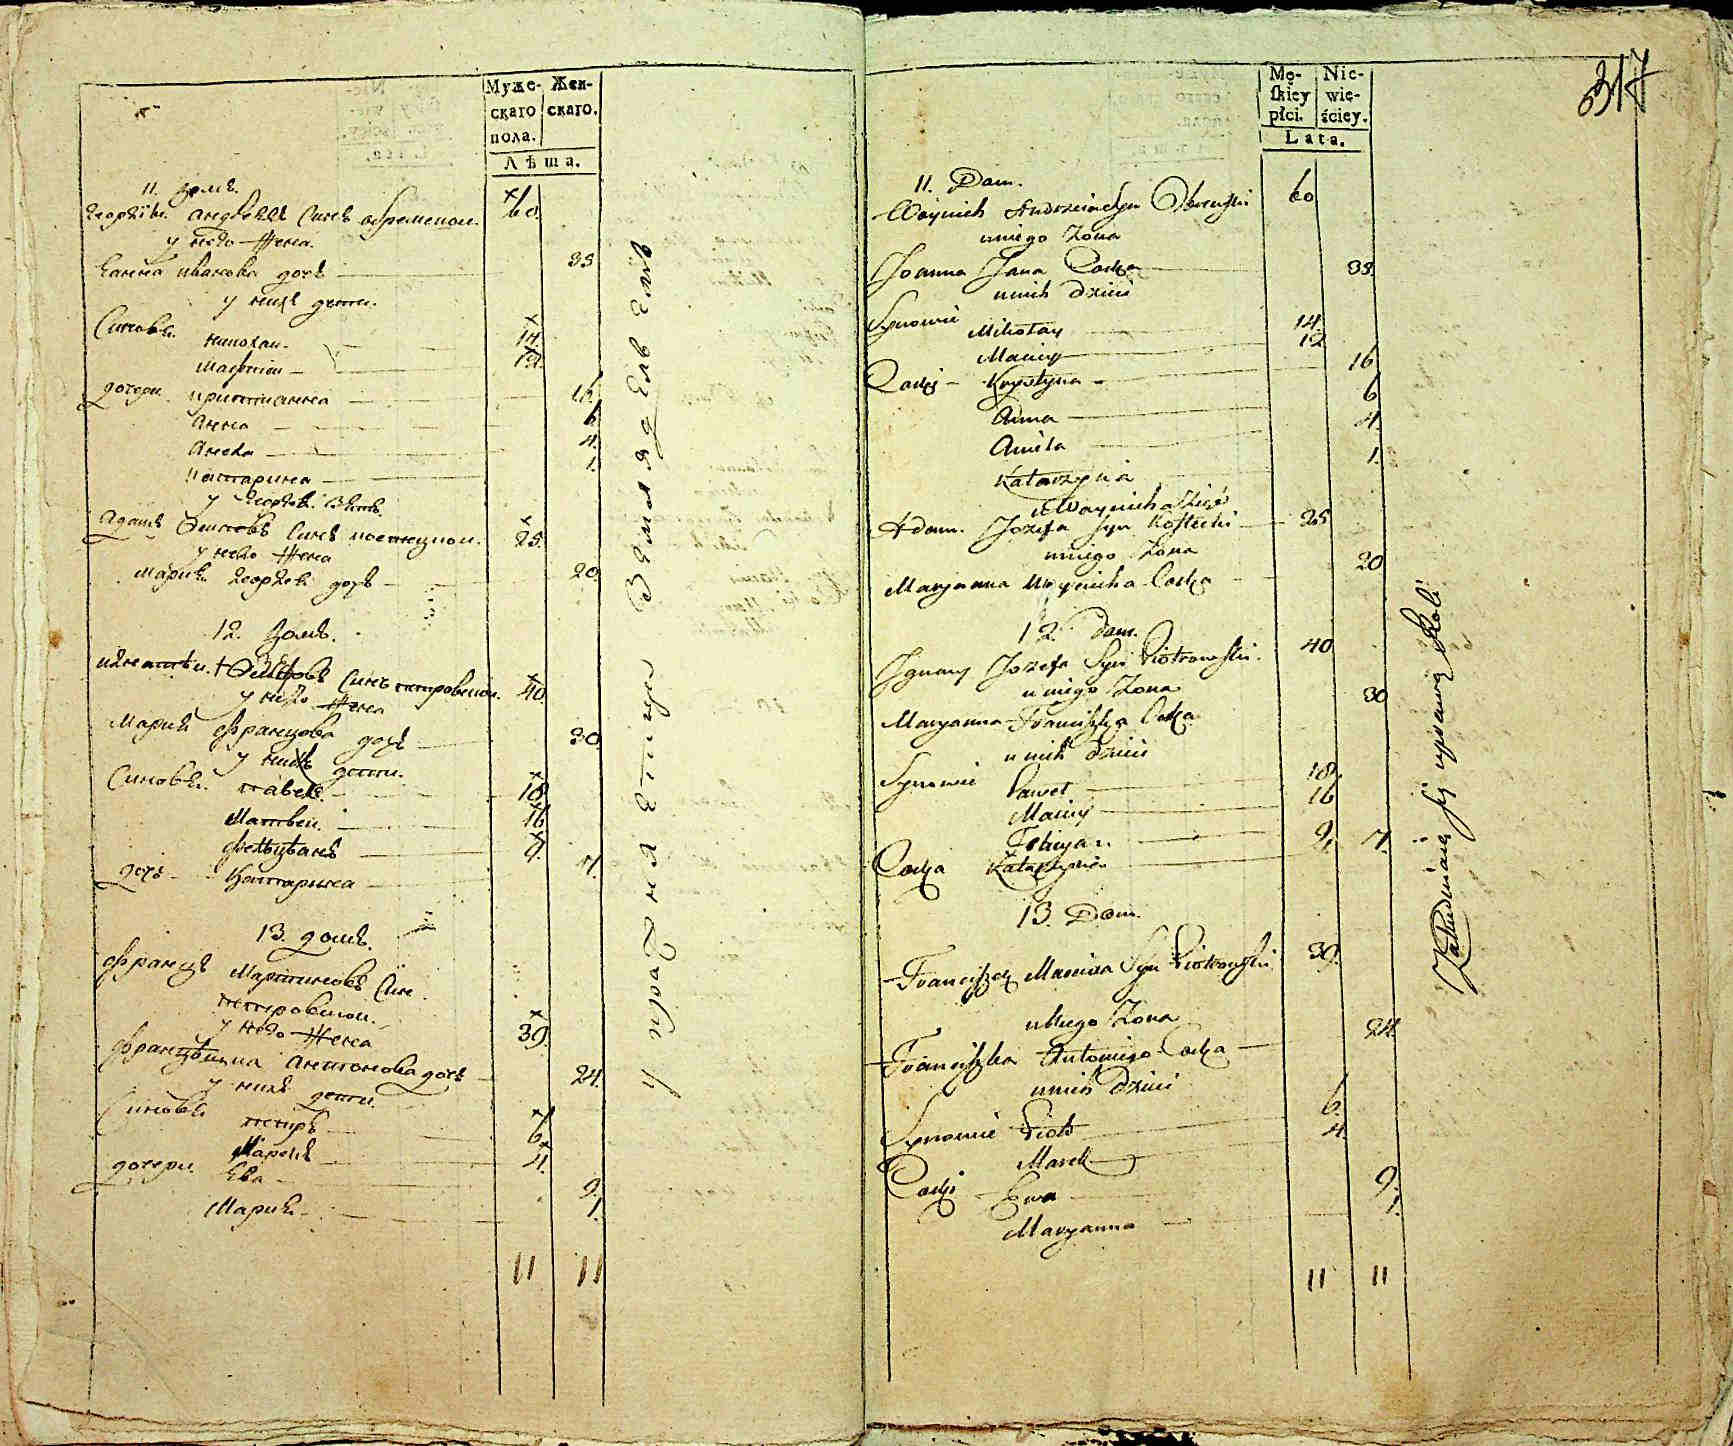 Муже-
скаго
пола.
Жен-
скаго.
Лѣта.
11. Домъ.
60.
у него Жена.
Ванна Иванова дочь 35
у нихъ дети.
Синовъя. Николаи 14.
Мартин 12.
дочери. Християнна 16.
Анна 6
Анела 4.
Катарина 1.
Адамъ Осиповъ Синъ 25.
у него Жена
Мария дочь 20.
12. Домъ.
Игнатеи Осиповъ Синъ Петровскои. 40.
у него Жена
Мария Францова дочь 30
у нихъ дети.
Синовъя. Павелъ 18
Матвеи. 16
9.
дочь Катарина 7.
13. домъ.
Францъ Мартиновъ Син
Петровскои.
39.
у него Жена
Антонова дочь 24.
у нихъ дети.
Синовъя Петръ 6.
Марекъ 4.
дочери. Ева 9.
Мария 1.
11 11
317
Mę-
skiey
płci.
Nie-
wie-
ściey.
Lata.
11. Dom.
Woyciech Syn 60
u niego Żona
Joanna Jana Corka 35.
u nich Dzieci
Synowie Mikołay 14.
Maciey 12
Corki Krystyna 16
Anna 6
Aniela 4.
Katarzyna 1.
u Woyciecha Zięć
Adam Jozefa Syn Kostecki 25
u niego Żona
Maryanna Woyciecha Corka 20
12. Dom.
Ignacy Jozefa Syn Piotrowski. 40
u niego Żona
Maryanna Franciszka Corka 30
u nich Dzieci
Synowie Paweł 18.
Maciey 16
Felicyan 9.
Corka Katarzyna 7.
13. Dom.
Franciszek Marcina Syn Piotrowski 39.
u Niego Żona
Franciszka Antoniego Corka 24.
u nich Dzieci
Synowie Piotr 6.
Marek 4.
Corki Ewa 9.
Maryanna 1.
11 11